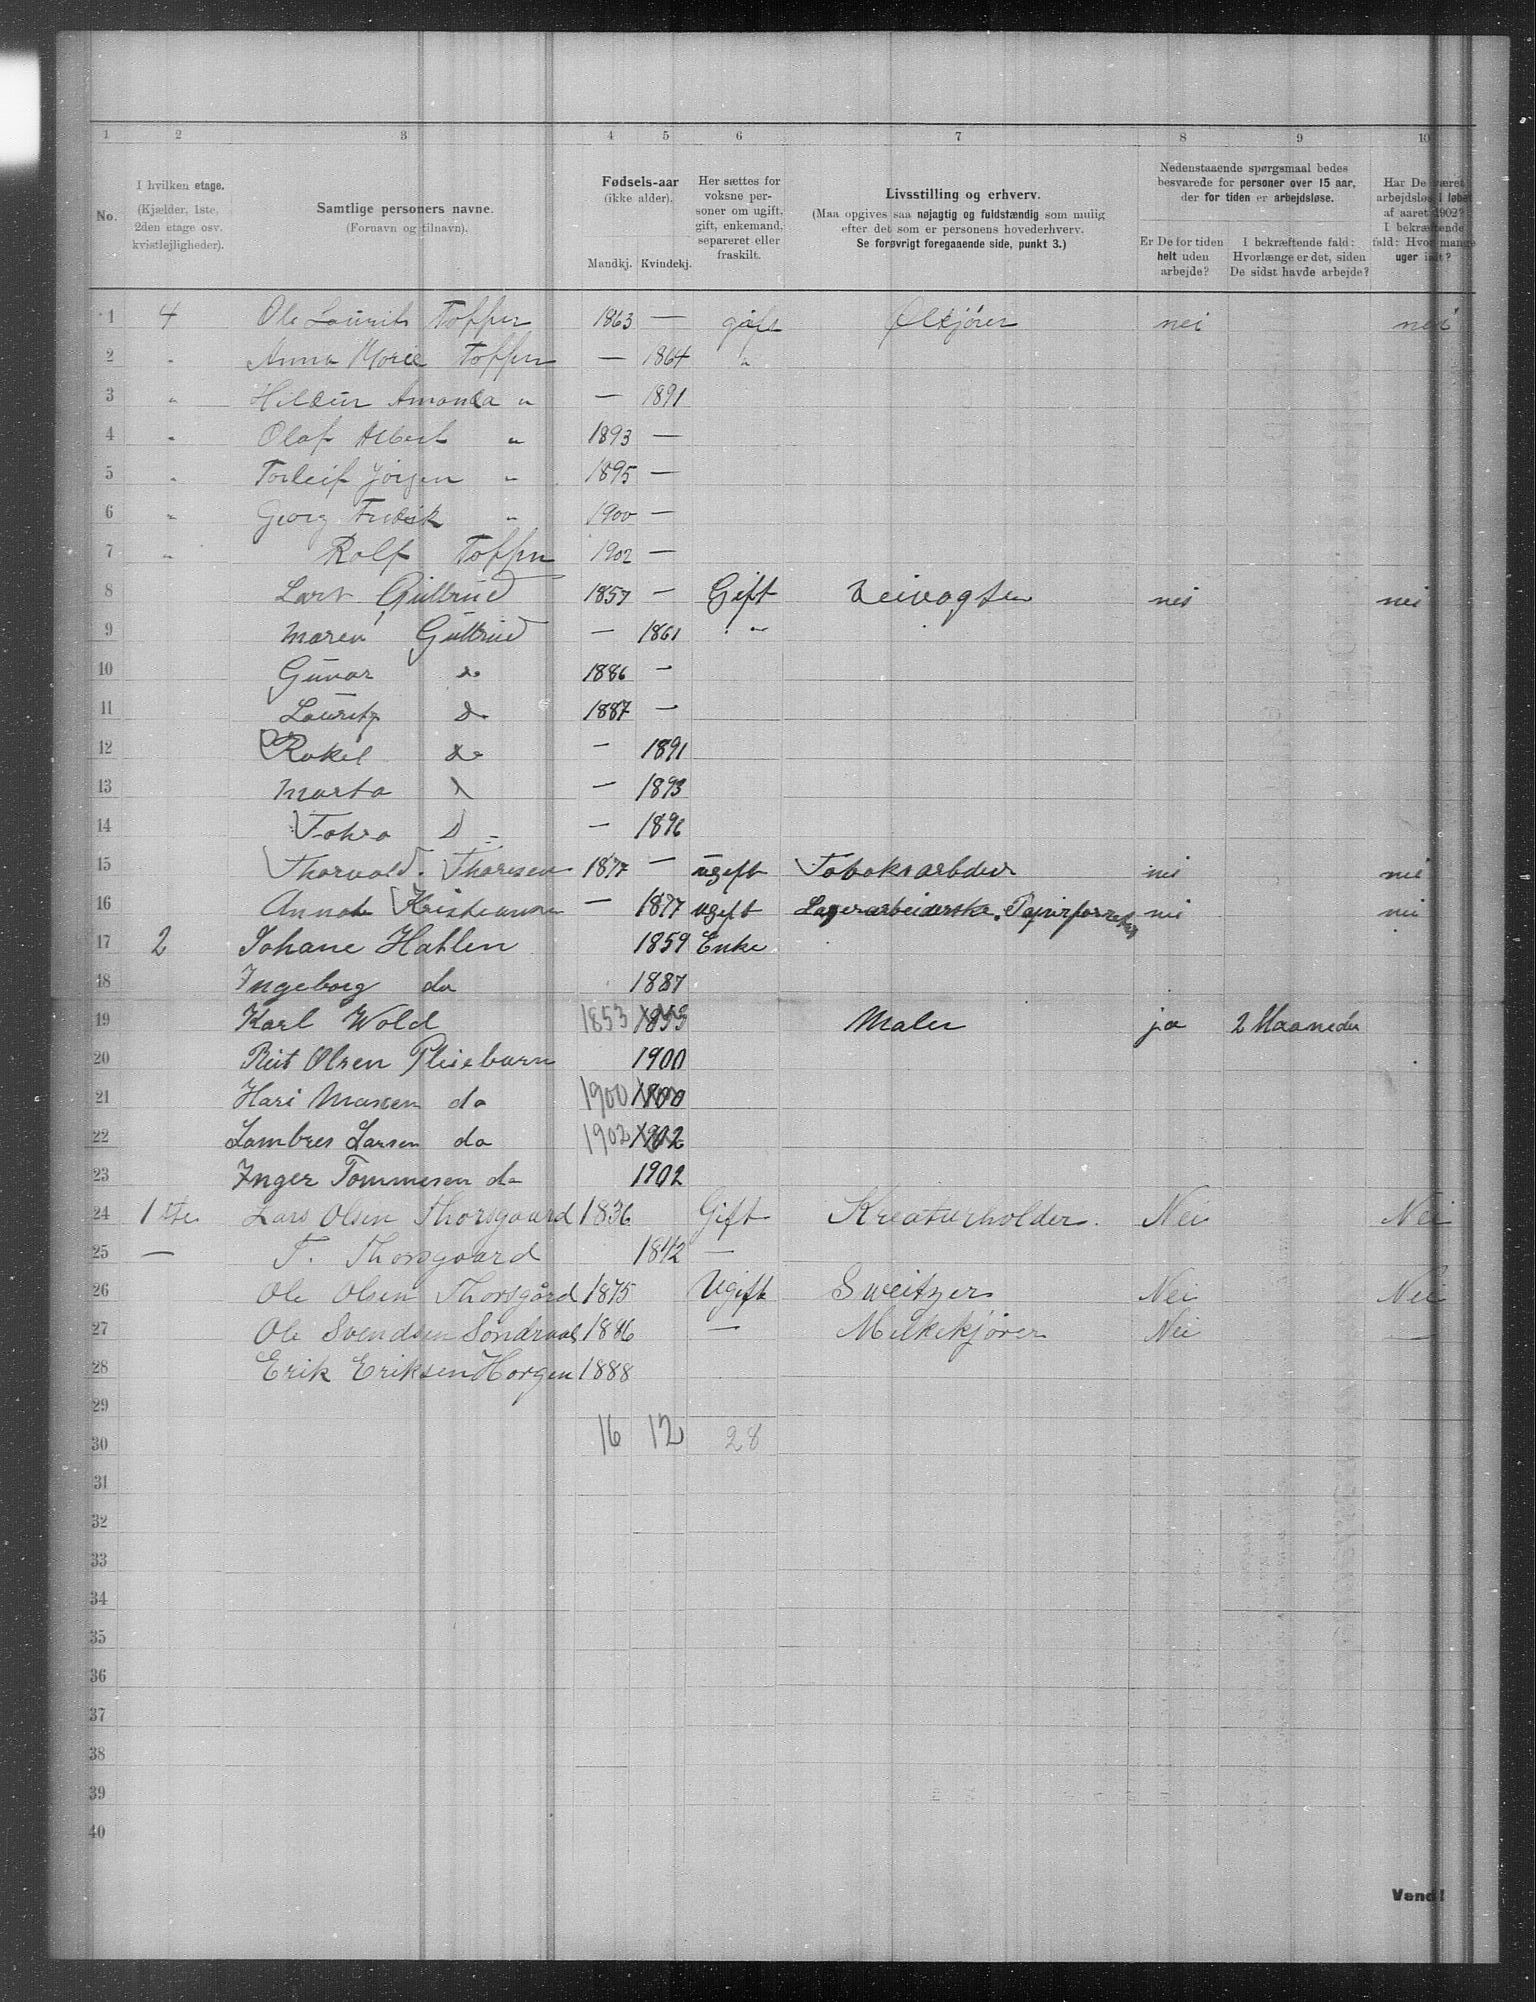 1 2 3 4 5 6 7 8 9 10
No.
I hvilken etage.
(Kjælder, 1ste,
2den etage osv.
kvistlejligheder).
Samtlige personers navne.
(Fornavn og tilnavn).
Fødsels-aar
(ikke alder).
Mandkj. Kvindekj.
Her sættes for
voksne per-
soner om ugift,
gift, enkemand,
separeret eller
fraskilt.
Livsstilling og erhverv.
(Maa opgives saa nøjagtig og fuldstændig som mulig
efter det som er personens hovederhverv.
Se forøvrigt foregaaende side, punkt 3.)
Nedenstaaende spørgsmaal bedes
besvarede for personer over 15 aar,
der for tiden er arbejdsløse.
Er De for tiden
helt uden
arbejde?
I bekræftende fald:
Hvorlænge er det, siden
De sidst havde arbejde?
Har De været
arbejdsløs i løbet
af aaret 1902?
I bekræftende
fald: Hvor mange
uger ialt?
1 4 Ole Laurits Toffen 1863 — gift Ølkjører nei nei
2 " Anna Marie Toffen — 1864 "
3 " Hildur Amanda " — 1891
4 " Olaf Albert " 1893 —
5 " Torleif Jørgen " 1895 —
6 " Georg Fredrik " 1900 —
7 " Rolf Toffen 1902 —
8 Lars Gullrud 1857 — Gift Veivogter nei nei
9 Maren Gullrud — 1861 "
10 Gunar do 1886 —
11 Lauritz do 1887 —
12 Rakel do — 1891
13 Marta — 1893
14 Tohra D — 1896
15 Thorvald Thoresen 1877 — ugift Tobaksarbeider nei nei
16 Anna Kristiansen — 1877 ugift Lagerarbeiderske Papirforretn nei nei
17 2 Johane Hatlen 1859 Enke
18 Ingeborg do 1887
19 Karl Wold 1853 1853 Maler ja 2 Maaneder
20 Rut Olsen Pleiebarn 1900
21 Hari Mansen do 1900 1900
22 Lambres Larsen do 1902 1902
23 Inger Tommesen do 1902
24 1ste Lars Olsen Thorsgaard 1836 Gift Kreaturholder. Nei Nei
25 — T. Thorsgaard 1842 —
26 Ole Olsen Thorsgård 1875 Ugift Sweitzer Nei Nei
27 Ole Svendsen Søndraal 1886 — Melkekjører Nei —
28 Erik Eriksen Horgen 1888
29
30 16 12 28
31
32
33
34
35
36
37
38
39
40
Vend!